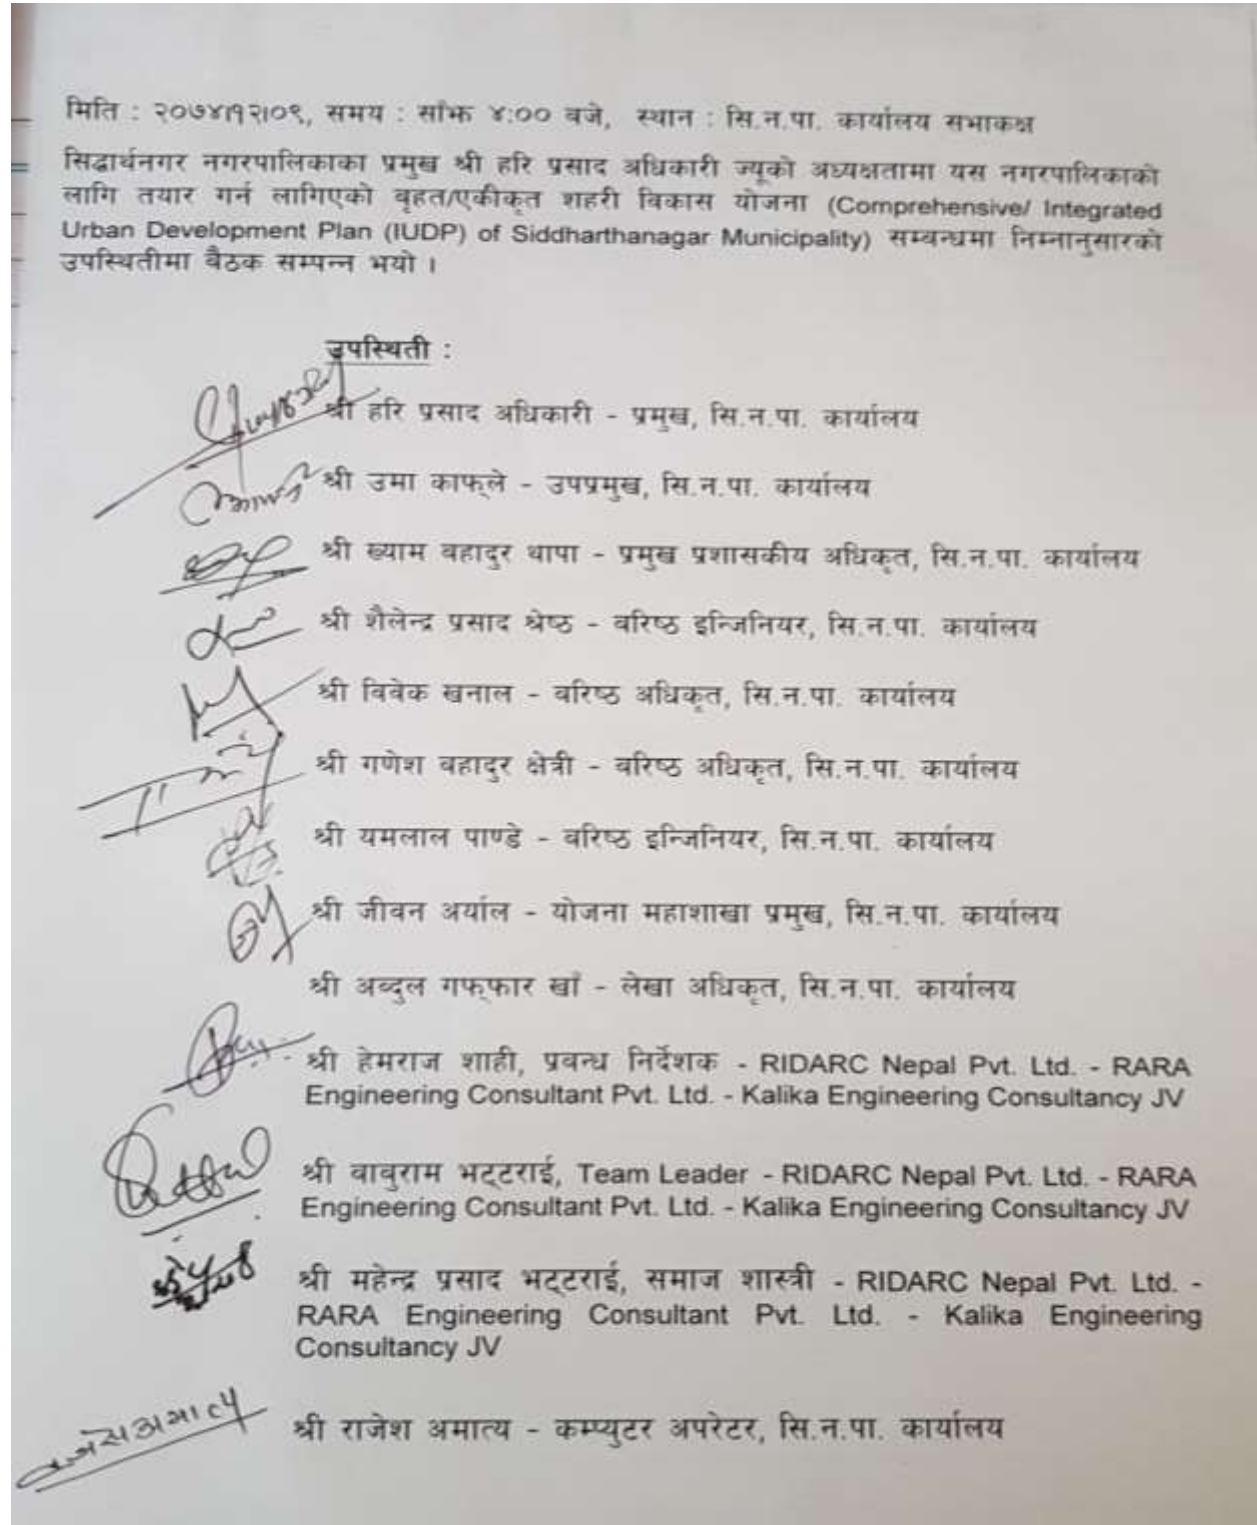 मिति : २०७४।१२।०९, समय : साँझ ४:०० बजे, स्थान : सि.न.पा. कार्यालय सभाकक्ष
सिद्धार्थनगर नगरपालिकाका प्रमुख श्री हरि प्रसाद अधिकारी ज्यूको अध्यक्षतामा यस नगरपालिकाको
लागि तयार गर्न लागिएको बृहत/एकीकृत शहरी विकास योजना (Comprehensive/ Integrated
Urban Development Plan (IUDP) of Siddharthanagar Municipality) सम्बन्धमा निम्नानुसारको
उपस्थितीमा बैठक सम्पन्न भयो ।
उपस्थिती :
श्री हरि प्रसाद अधिकारी - प्रमुख, सि.न.पा. कार्यालय
श्री उमा काफ्ले - उपप्रमुख, सि.न.पा. कार्यालय
श्री ख्याम बहादुर थापा - प्रमुख प्रशासकीय अधिकृत, सि.न.पा. कार्यालय
श्री शैलेन्द्र प्रसाद श्रेष्ठ - वरिष्ठ इन्जिनियर, सि.न.पा. कार्यालय
श्री विवेक खनाल - वरिष्ठ अधिकृत, सि.न.पा. कार्यालय
श्री गणेश बहादुर क्षेत्री - वरिष्ठ अधिकृत, सि.न.पा. कार्यालय
श्री यमलाल पाण्डे - वरिष्ठ इन्जिनियर, सि.न.पा. कार्यालय
श्री जीवन अर्याल - योजना महाशाखा प्रमुख, सि.न.पा. कार्यालय
श्री अब्दुल गफ्फार खाँ - लेखा अधिकृत, सि.न.पा. कार्यालय
श्री हेमराज शाही, प्रबन्ध निर्देशक - RIDARC Nepal Pvt. Ltd. - RARA
Engineering Consultant Pvt. Ltd. - Kalika Engineering Consultancy JV
श्री बाबुराम भट्टराई, Team Leader - RIDARC Nepal Pvt. Ltd. - RARA
Engineering Consultant Pvt. Ltd. - Kalika Engineering Consultancy JV
श्री महेन्द्र प्रसाद भट्टराई, समाज शास्त्री - RIDARC Nepal Pvt. Ltd. -
RARA Engineering Consultant Pvt. Ltd. - Kalika Engineering
Consultancy JV
श्री राजेश अमात्य - कम्प्युटर अपरेटर, सि.न.पा. कार्यालय